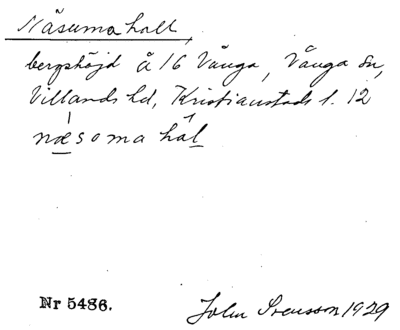 Näsumahall,
bergshöjd å 16 Vånga, Vånga sn,
Villands hd, Kristianstads l. 12
næsoma hål
Nr 5486.
John Svensson 1929